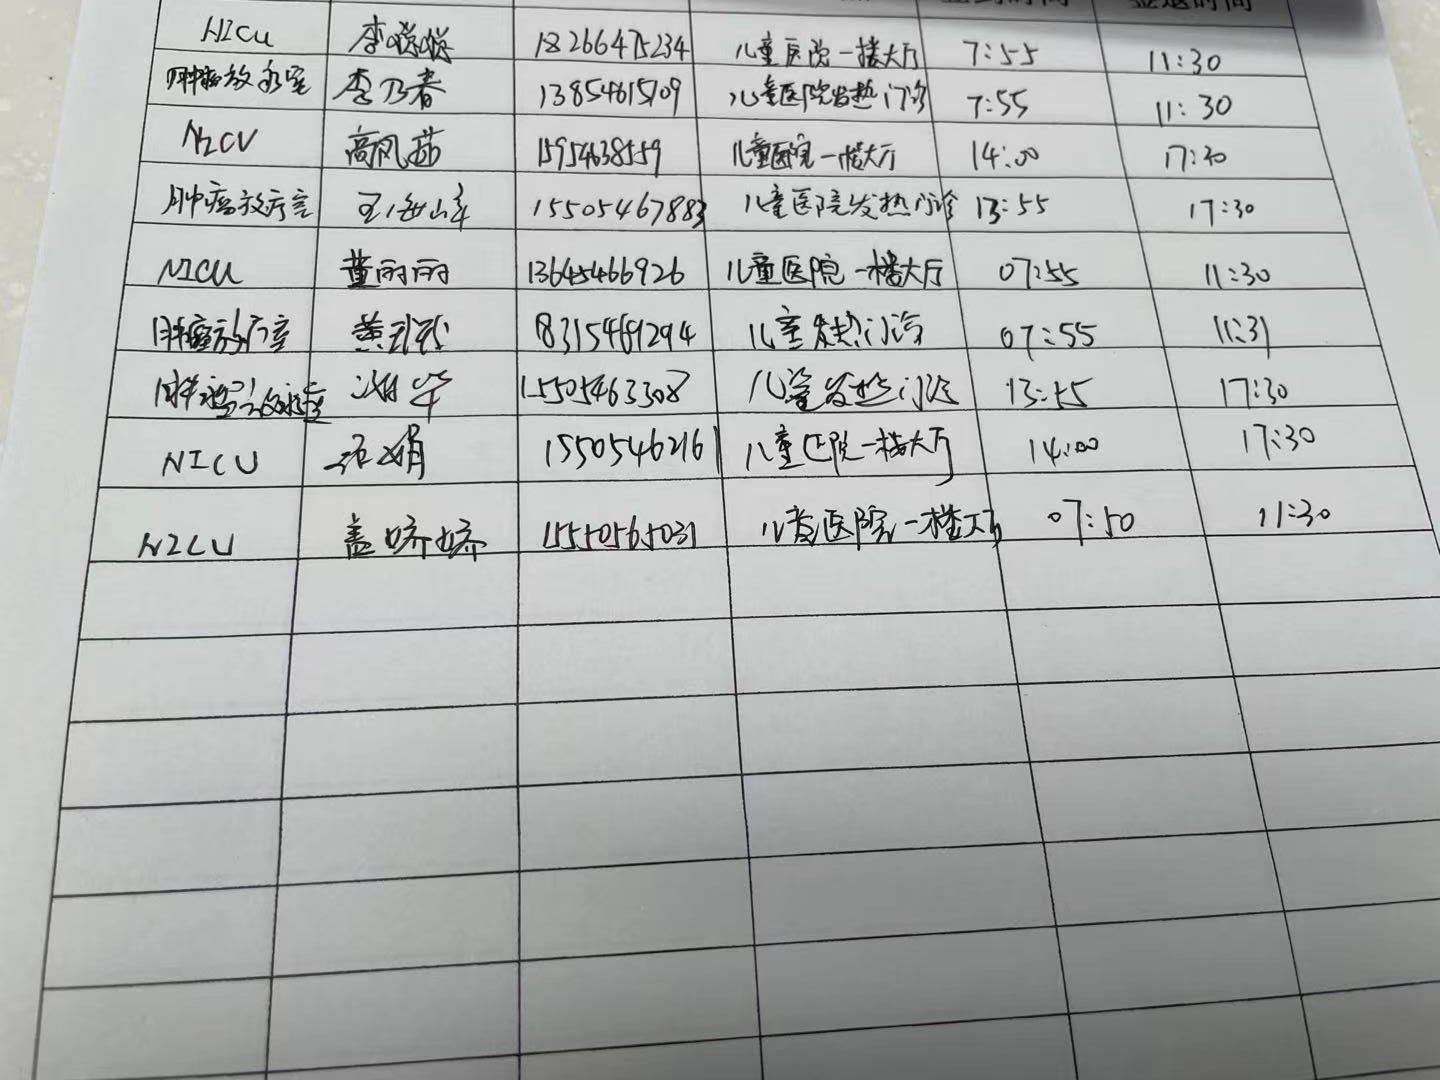 签到时间 签退时间
NICU 李 18266475234 儿童医院一楼大厅 7:55 11:30
肿瘤放疗室 李乃春 13854615109 儿童医院发热门诊 7:55 11:30
NICU 高凤茹 15954638559 儿童医院一楼大厅 14:00 17:30
肿瘤放疗室 王 15505467883 儿童医院发热门诊 13:55 17:30
NICU 董丽丽 13645466926 儿童医院一楼大厅 07:55 11:30
肿瘤放疗室 黄 18315461294 儿童发热门诊 07:55 11:31
肿瘤放疗室 15505463308 儿童发热门诊 13:55 17:30
NICU 娟 15505462161 儿童医院一楼大厅 14:00 17:30
NICU 盖娇娇 15550565031 儿童医院一楼大厅 07:50 11:30